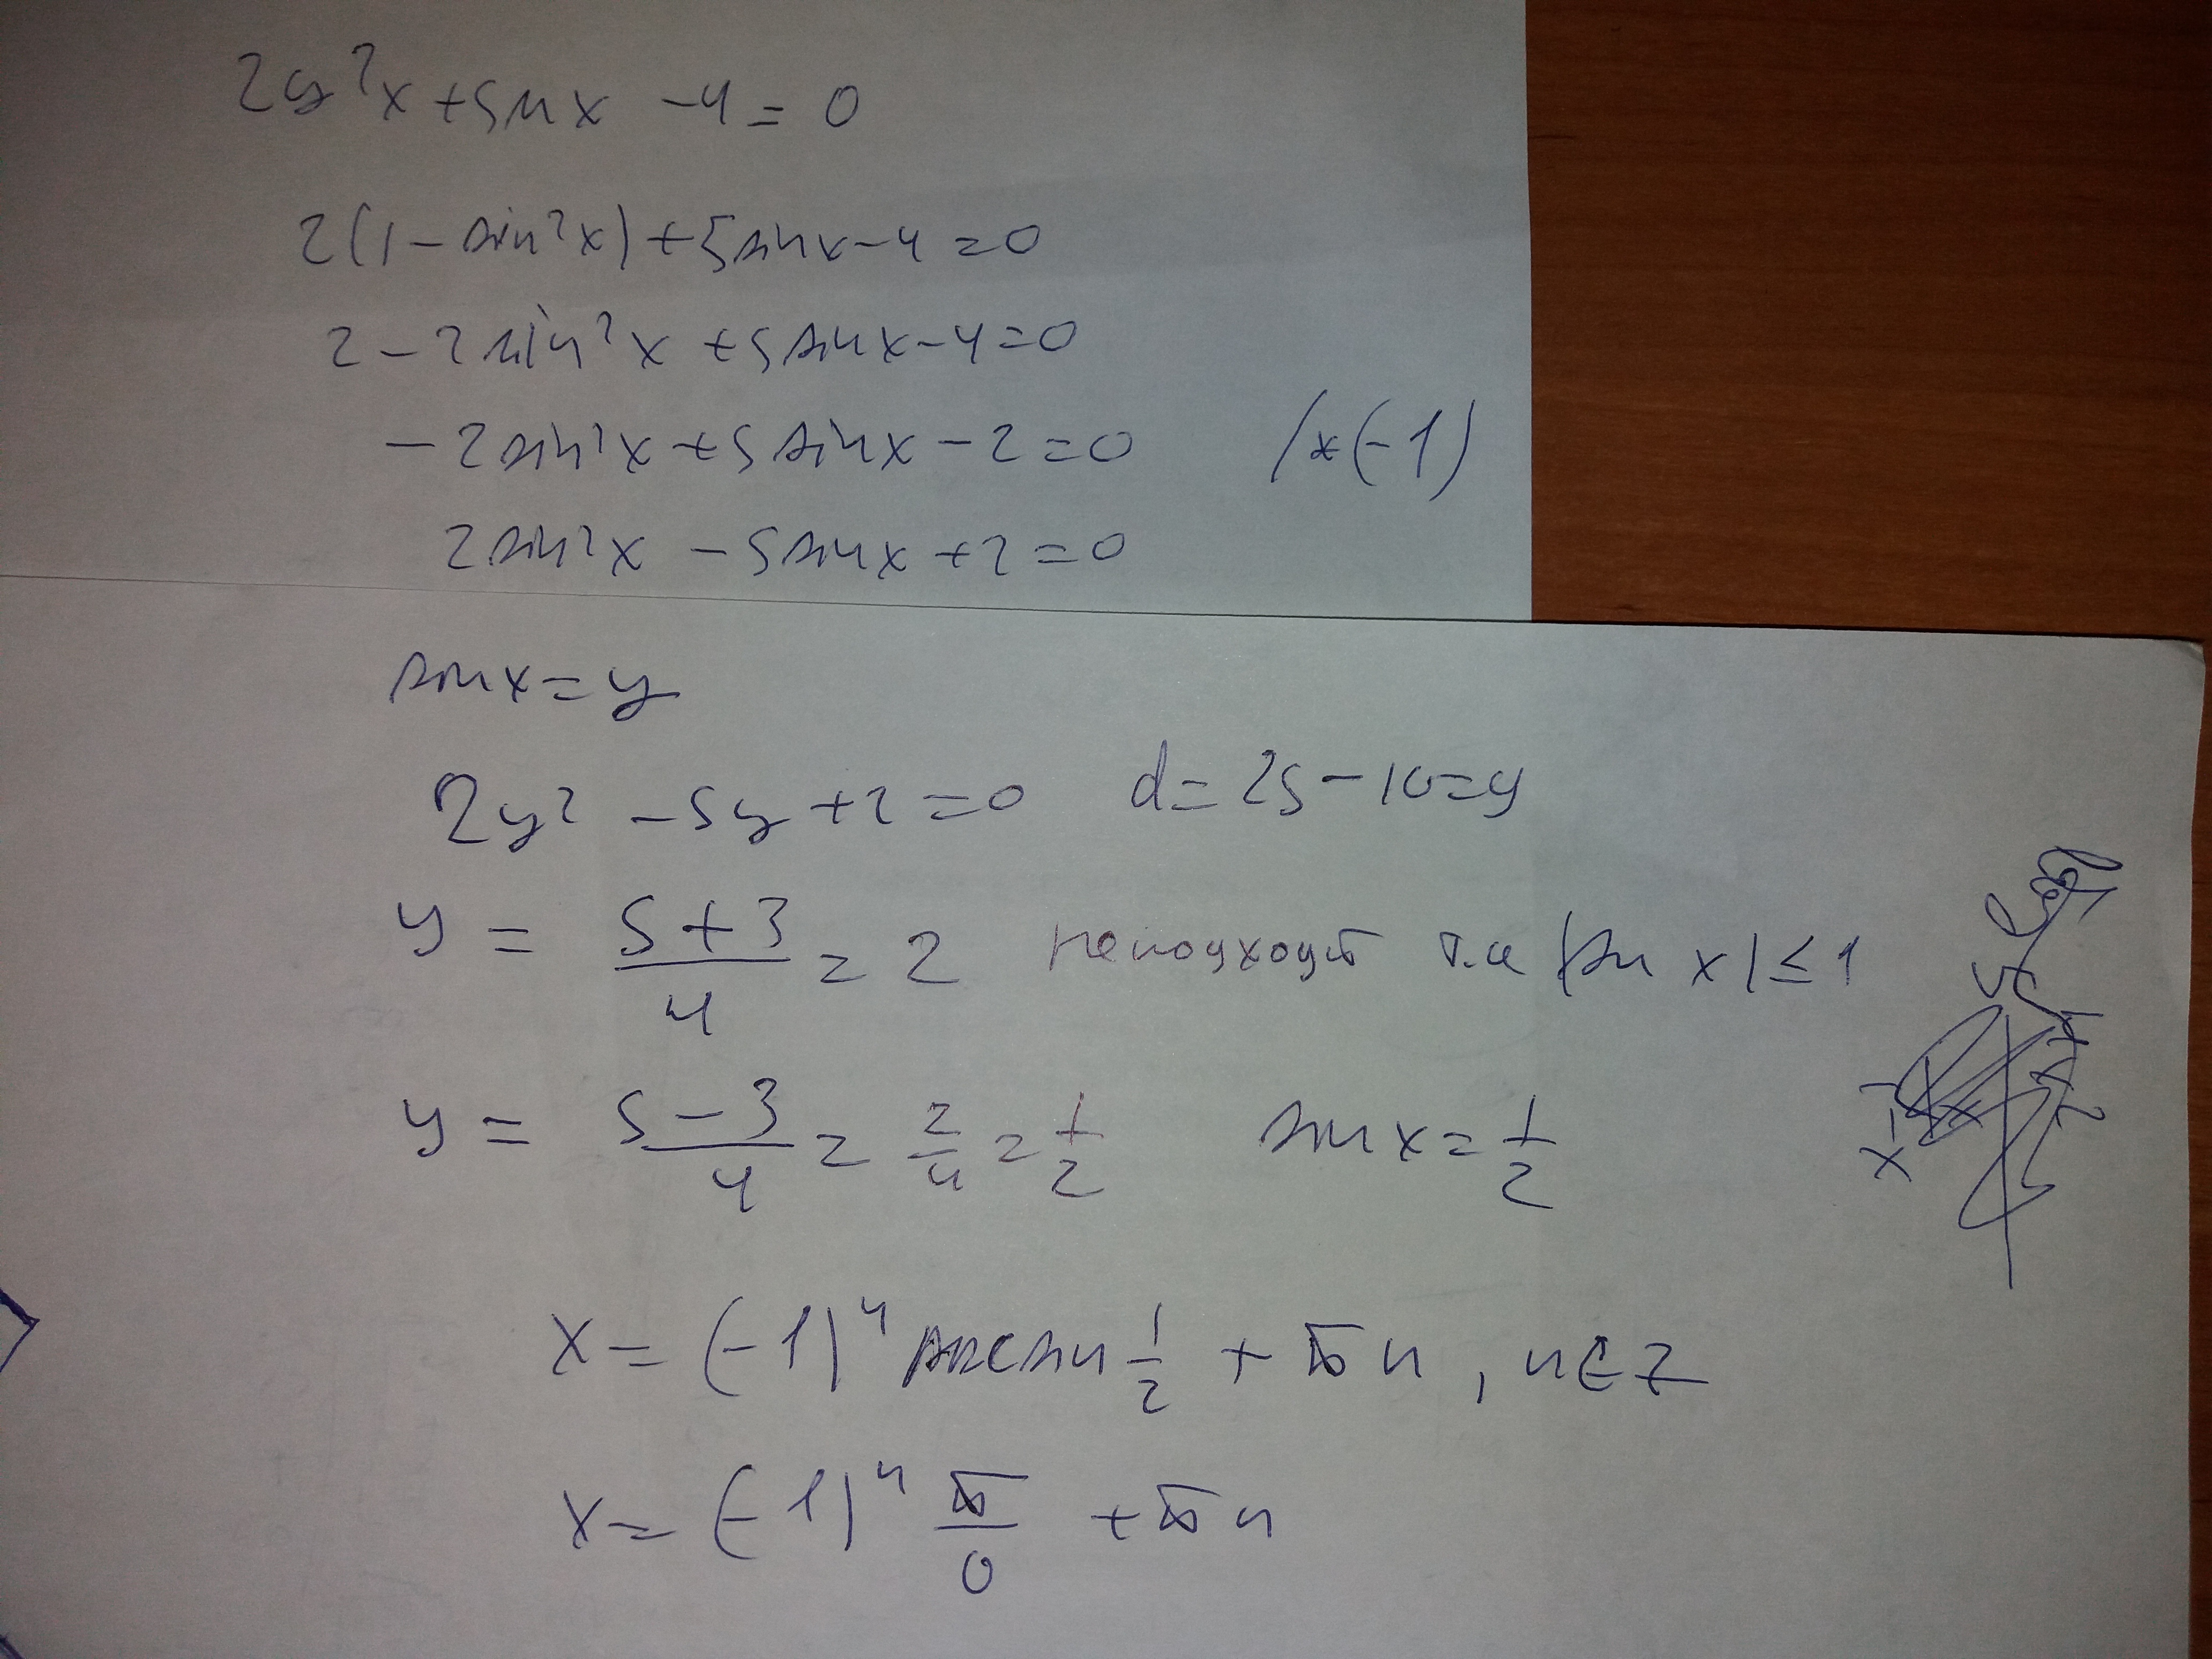 2y²x+sinx -4=0
2(1-sin²x)+5sinx-4=0
2-2sin²x+5sinx-4=0
-2sin²x+5sinx-2=0 /*(-1)
2sin²x-5sinx+2=0
sinx=y
2y²-5y+2=0 d=25-16=9
y = (5+3)/4 = 2 не подходит т.к |sin x|≤1
y = (5-3)/4 = 2/4 = 1/2 sin x = 1/2
x = (-1)ⁿ arcsin 1/2 + πn, n∈Z
x = (-1)ⁿ π/0 + πn